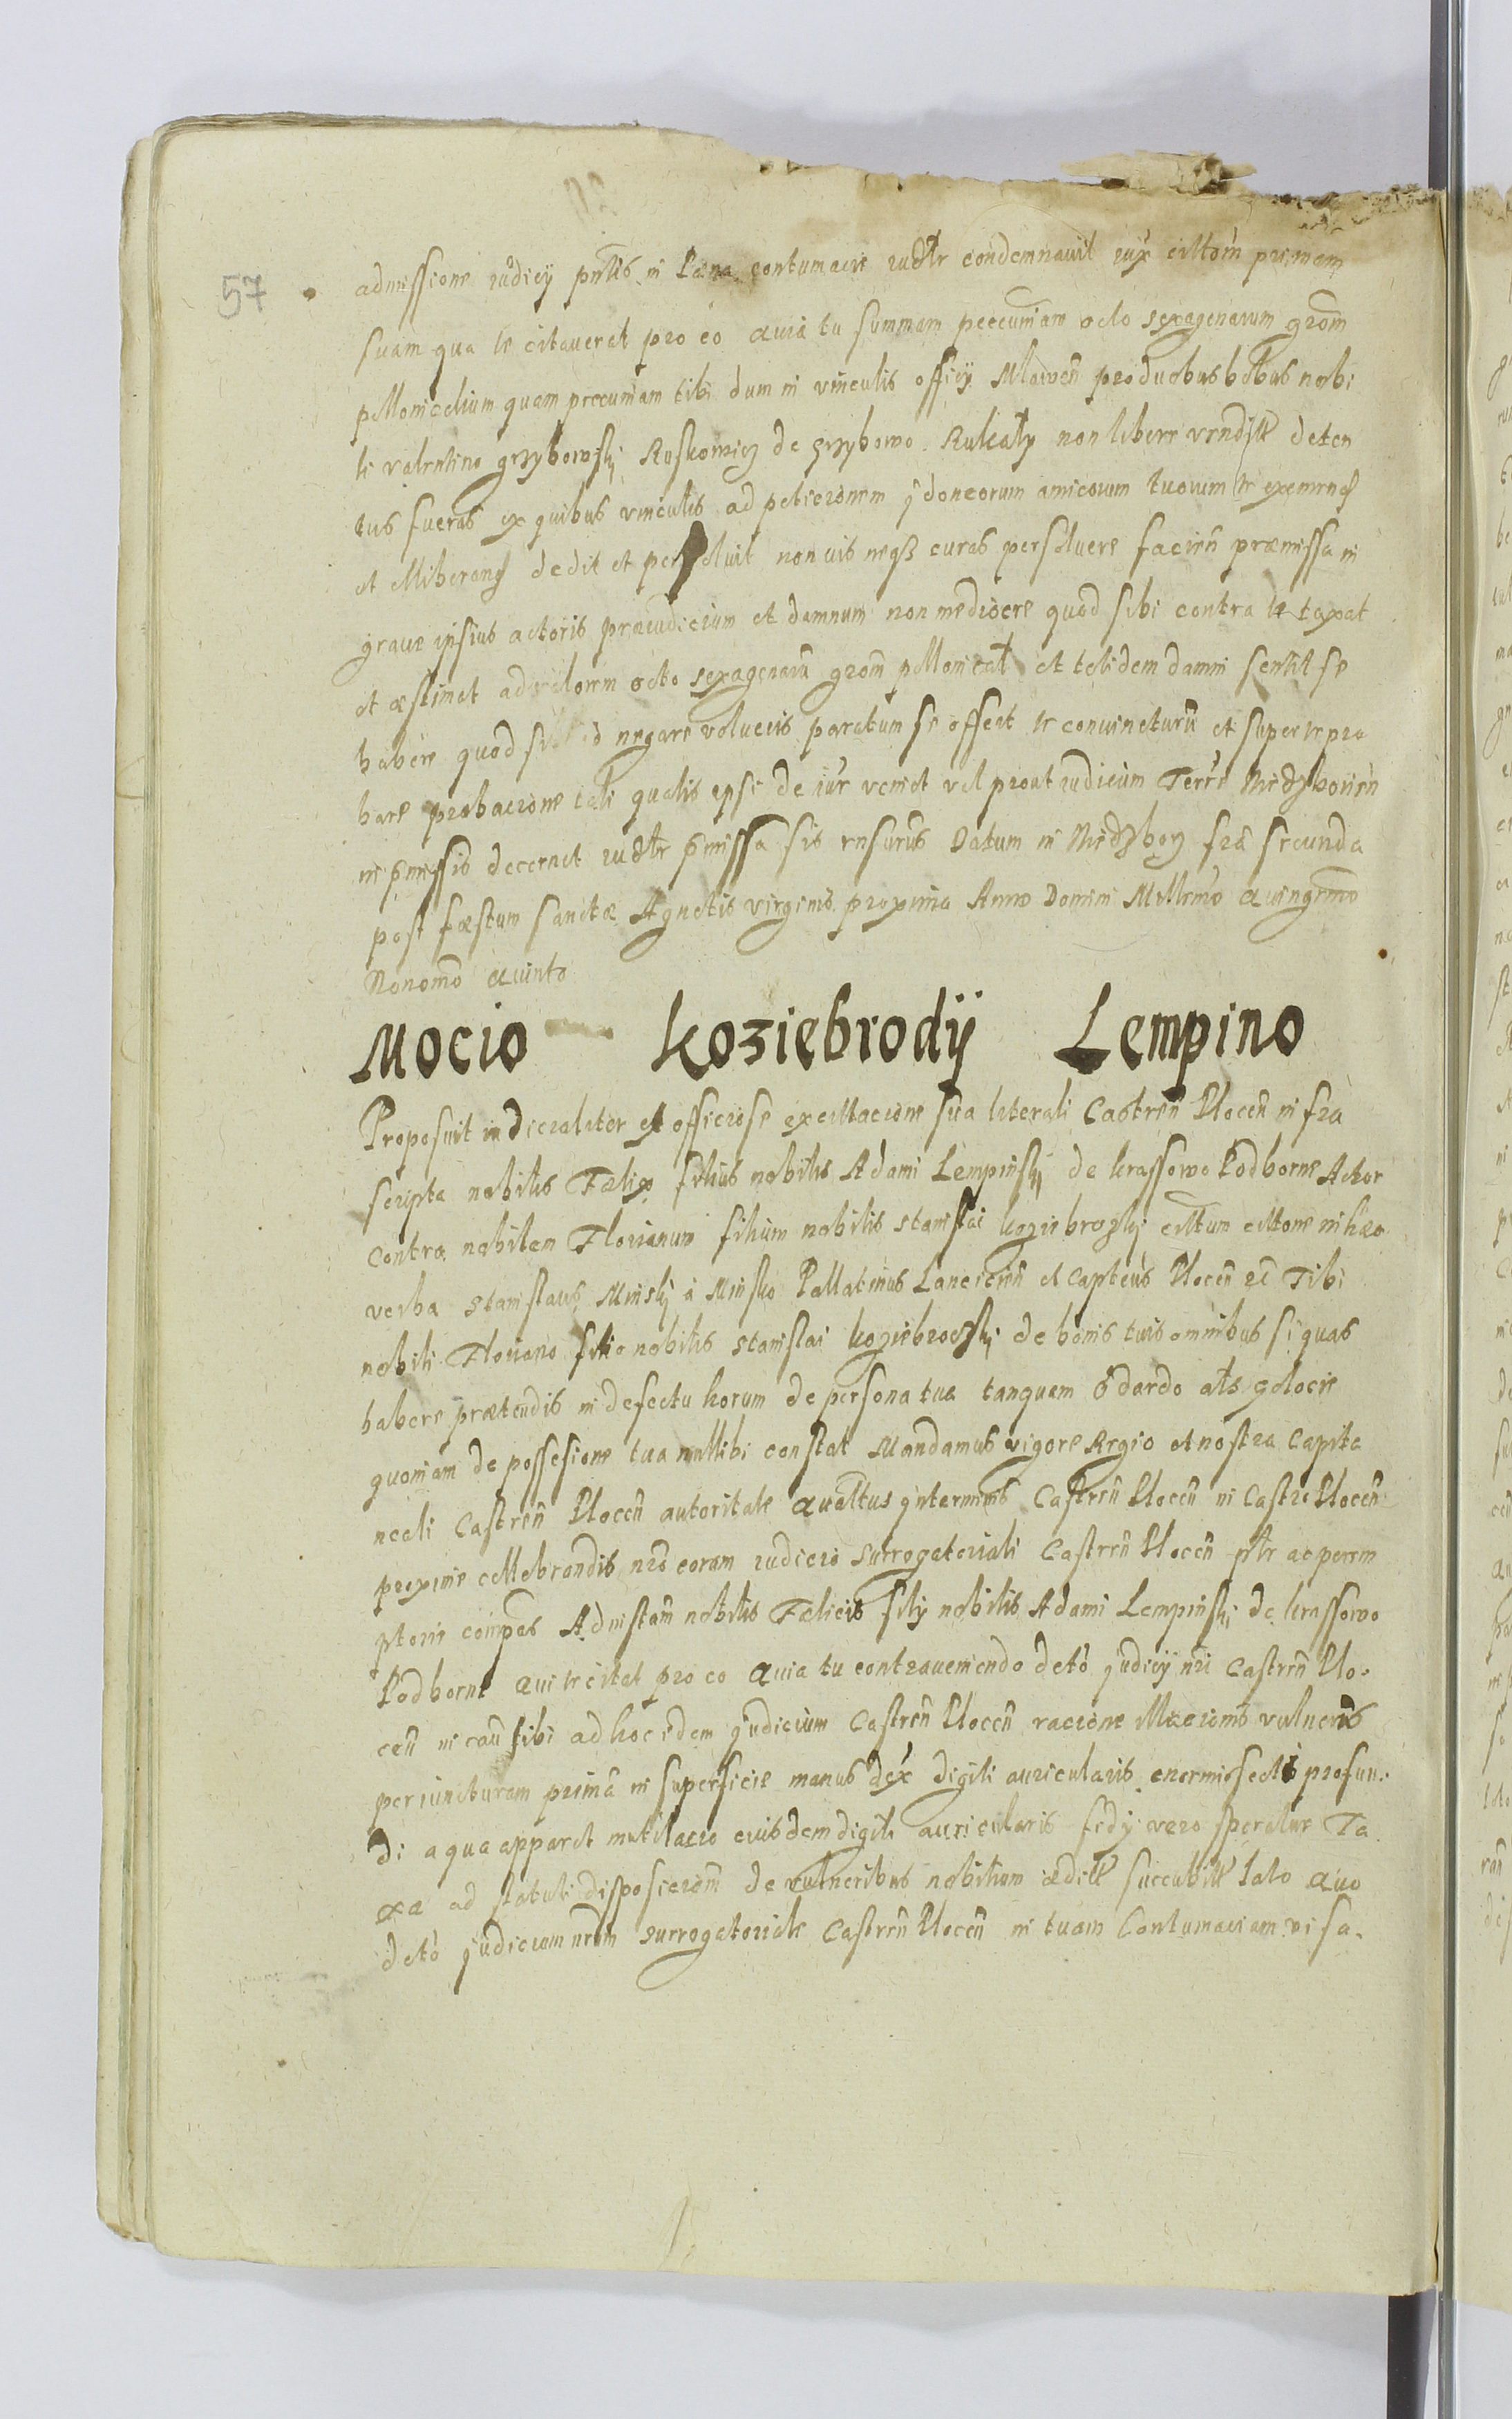 57
admissione iudicÿ pntis in Pæna contumacie iudtr condemnauit iux cittom primam
suam qua te citauerat pro eo quia tu summam peecuniam octo sexagenarum grom
pollonicalium quam peecuniam tibi dum in vinculis officÿ Mlawen pro duobus bobus nobi
li valentino grzybowskj Ruskowicz de grzybowo Rukaly non libere vendit deten
tus fueras ex quibus vinculis ad peticionem ÿdoneorum amicorum tuorum te
et elliberans dedit et persoluit non vis neqz curas persoluere facien præmissa in
graue ipsius actoris præiudicium et damnum non mediocre quod sibi contra te taxat
et æstimat ad valorem octo sexagenaru grom pollonical et totidem damni sentit se
habere quod si negare volueris paratum se offert te conuincturu et super te pro
bare probacione tali qualis epsi de iur veniet vel proat iudicium Terre
in pmissis decernet iudtr pmissa sis Datum in fra secunda
post fæstum sanctæ Agnetis virginis proxima Anno Domini Millemo Quingemo
Nonomo Quinto
Mocio Koziebrodÿ Lempino
Proposuit iudicialiter et officiose ex cittacione sua literali Castren Plocen infra
scripta nobilis Fælix filius nobilis Adami Lempinskj de krassowo Podborne Actor
contra nobilem Florianum filium nobilis stanislai koziebrozkj cittum cittone in hæc
verba stanislaus Minskj à Minsko Pallatinus Lancicien et Capteus Plocen et Tibi
nobili Floriano filio nobilis stanislai koziebrodzkj de bonis tuis omnibus si quas
habere prætendis in defectu horum de persona tua tanquam odardo als golocie
quoniam de possesione tua nullibi constat Mandamus vigore Regio et nostra Capita
neali Castren Plocen autoritate Quattus in terminis Castren Plocen in Castro Plocen
proxime cellebrandis nro coram iudicio surrogatoriali Castren Plocen ptr ac perem
ptorie compas Ad instam nobilis Felicis filÿ nobilis Adami Lempinskj de krassowo
Podborne Qui te citat pro eo Quia tu contraueniendo deto judicÿ nri Castren Plo-
cen in cau tibi ad hoc idem judicium Castren Plocen racione illacionis vulneris
per iuncturam prima in superficie manus dex digiti auricularis enormis secti profun-
di a qua apparet mutilacio eiusdem digiti auricularis vero speratur Ta
xa ad statuti disposiciom de vulneribus nobilium ædit succubit lato Quo
deto judicium nrum surrogatoriale Castren Plocen in tuam Contumaciam visa.